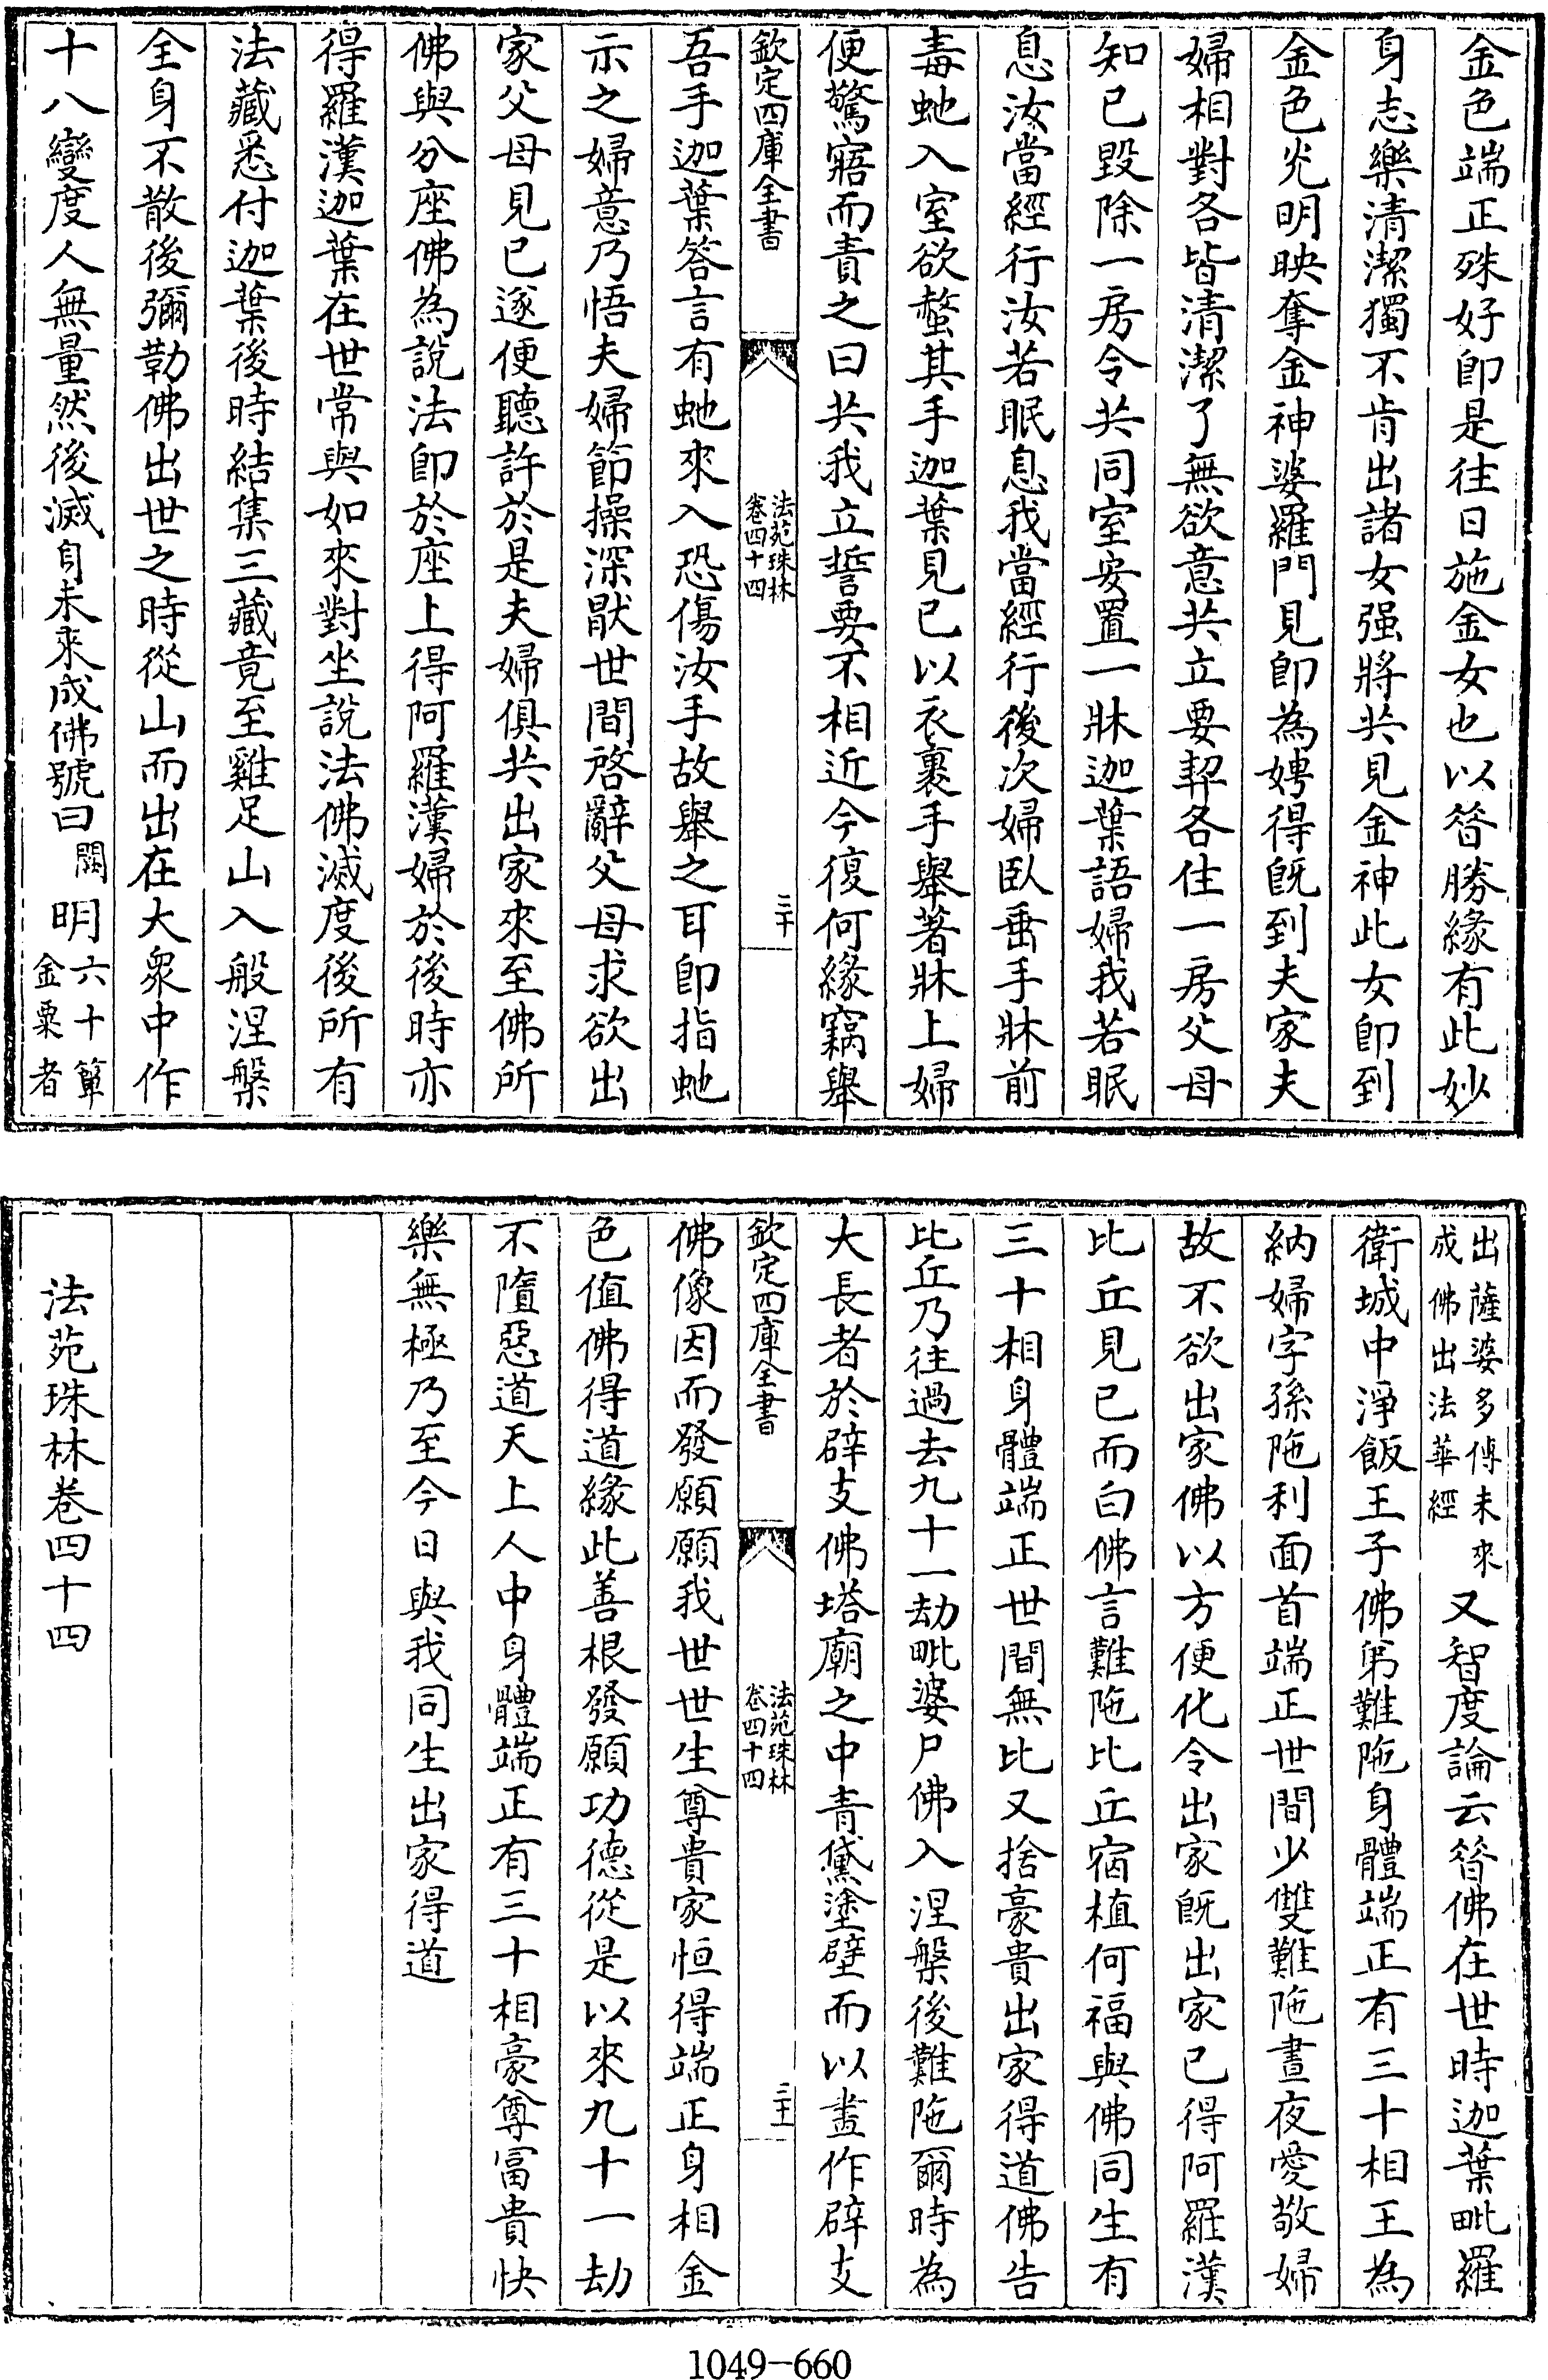 金色端正殊好即是往日施金女也以昝勝緣有此妙
身志樂清潔獨不肯出諸女强將共見金神此女即到
金色光明映奪金神婆羅門見即為娉得既到夫家夫
婦相對各皆清潔了無欲意共立要契各住一房父母
知已毀除一房令共同室安置一牀迦葉語婦我若眠
息汝當經行汝若眠息我當經行後次婦臥垂手牀前
毒虵入室欲螫其手迦葉見已以衣裹手舉著牀上婦
便驚寤而責之曰共我立誓要不相近今復何緣竊舉
欽定四庫全書
法苑珠林
卷四十四
三十
吾手迦葉答言有虵來入恐傷汝手故舉之耳即指虵
示之婦意乃悟夫婦節操深厭世間啓辭父母求欲出
家父母見已遂便聽許於是夫婦俱共出家來至佛所
佛與分座佛為說法即於座上得阿羅漢婦於後時亦
得羅漢迦葉在世常與如來對坐說法佛滅度後所有
法藏悉付迦葉後時結集三藏竟至雞足山入般涅槃
全身不散後彌勒佛出世之時從山而出在大衆中作
十八變度人無量然後滅自未來成佛號曰闕明六十簞
金粟者
出薩婆多傅未來
成佛出法華經
又智度論云昝佛在世時迦葉毗羅
衛城中淨飯王子佛弟難陁身體端正有三十相王為
納婦字孫陁利面首端正世間少雙難陁晝夜愛敬婦
故不欲出家佛以方便化令出家既出家已得阿羅漢
比丘見已而白佛言難陁比丘宿植何福與佛同生有
三十相身體端正世間無比又捨豪貴出家得道佛告
比丘乃往過去九十一劫毗婆尸佛入涅槃後難陁爾時為
大長者於辟支佛塔廟之中青黛塗壁而以畫作辟支
欽定四庫全書
法苑珠林
卷四十四
三十一
佛像因而發願願我世世生尊貴家恒得端正身相金
色值佛得道緣此善根發願功德從是以來九十一劫
不墮惡道天上人中身體端正有三十相豪尊富貴快
樂無極乃至今日與我同生出家得道
法苑珠林卷四十四
1049-660